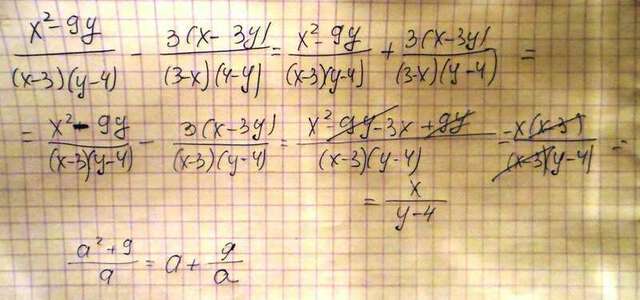 x²-9y/(x-3)(y-4) - 3(x-3y)/(3-x)(4-y) = x²-9y/(x-3)(y-4) + 3(x-3y)/(3-x)(y-4) =
= x²-9y/(x-3)(y-4) - 3(x-3y)/(x-3)(y-4) = x²-9y-3x+9y/(x-3)(y-4) = x(x-3)/(x-3)(y-4) =
= x/y-4
a²+9/a = a + 9/a